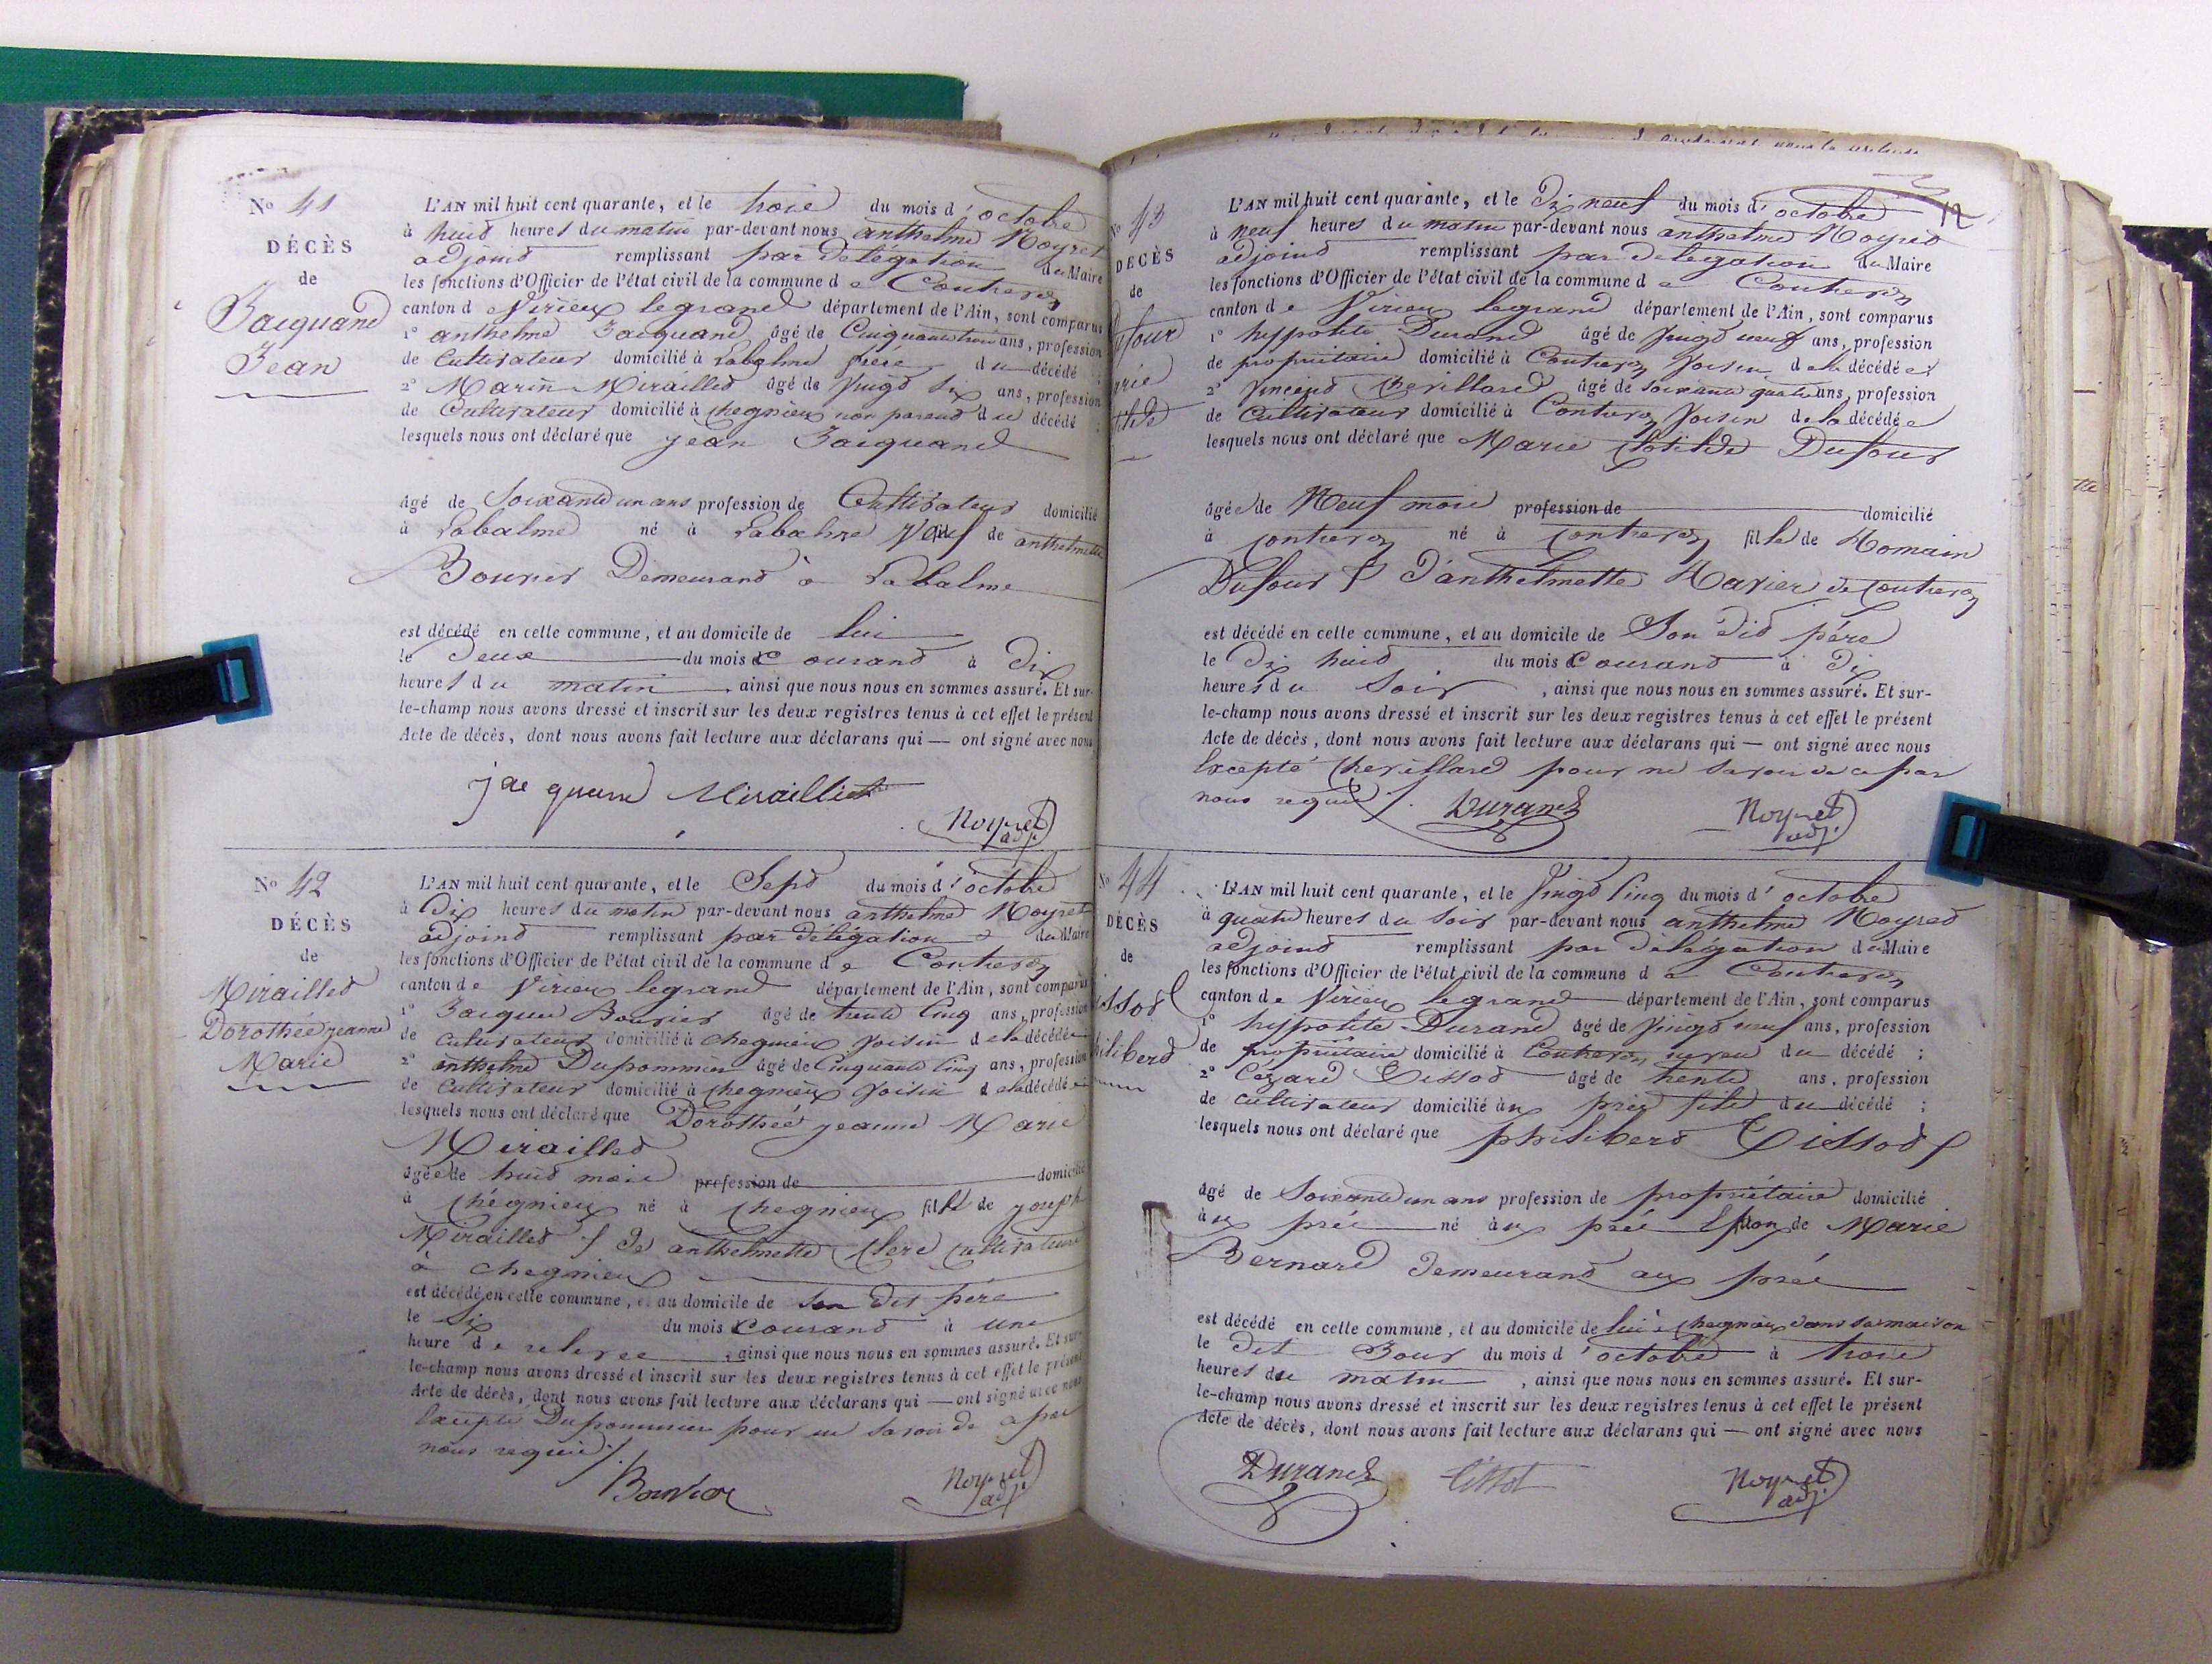 N° 41
DÉCÈS
de
Jacquand
Jean
L'AN mil huit cent quarante, et le trois du mois d'octobre
à huit heures du matin par-devant nous anthelme Noyret
adjoint remplissant par délégation du Maire
les fonctions d'Officier de l'état civil de la commune de Contrevoz
canton de Virieu legrand département de l'Ain, sont comparus
1° anthelme Jacquand âgé de Cinquante trois ans, profession
de Cultivateur domicilié à Labalme frere du décédé ;
2° Marin Miraillet âgé de Vingt Six ans, profession
de Cultivateur domicilié à chegnieu non parent du décédé ;
lesquels nous ont déclaré que jean Jacquand
âgé de Soixante un ans profession de Cultivateur domicilié
à Labalme né à Labalme Veuf de anthelmette
Bouvier Demeurant à Labalme
est décédé en cette commune, et au domicile de lui
le Deux du mois Courant à Dix
heures du matin, ainsi que nous nous en sommes assuré. Et sur-
le-champ nous avons dressé et inscrit sur les deux registres tenus à cet effet le présent
Acte de décès, dont nous avons fait lecture aux déclarans qui — ont signé avec nous
Miraillet
Noyret
adj.
N° 42
DÉCÈS
de
Miraillet
Dorothée jeanne
Marie
L'AN mil huit cent quarante, et le Sept du mois d'octobre
à Dix heures du matin par-devant nous anthelme Noyret
adjoint remplissant par délégation du Maire
les fonctions d'Officier de l'état civil de la commune de Contrevoz
canton de Virieu legrand département de l'Ain, sont comparus
1° Jacques Bouvier âgé de trente Cinq ans, profession
de cultivateur domicilié à chegnieu Voisin de la décédée
2° anthelme Dupommier âgé de Cinquante Cinq ans, profession
de Cultivateur domicilié à chegnieu Voisin de la décédée
lesquels nous ont déclaré que Dorothée jeanne Marie
Miraillet
âgée de huit mois profession de domicilié
à chégnieu né à chegnieu fille de joseph
Miraillet & de anthelmette Clerc Cultivateurs
à chegnieu
est décédé en cette commune, et au domicile de Son dit père
le Six du mois Courant à une
heure de relevee, ainsi que nous nous en sommes assuré. Et sur-
le-champ nous avons dressé et inscrit sur les deux registres tenus à cet effet le présent
Acte de décès, dont nous avons fait lecture aux déclarans qui — ont signé avec nous
Excepté Dupommier pour ne Savoir de a par
nous requis /.
Bouvier
Noyret
adj.
N° 43
DÉCÈS
de
L'AN mil huit cent quarante, et le Dix neuf du mois d'octobre
12
à neuf heures du matin par-devant nous anthelme Noyret
adjoint remplissant par délégation du Maire
les fonctions d'Officier de l'état civil de la commune de Contrevoz
canton de Virieu legrand département de l'Ain, sont comparus
1° hyppolite Durand âgé de Vingt neuf ans, profession
de propriétaire domicilié à Contrevoz Voisin de la décédée ;
2° Vincent Cherillard âgé de soixante quatre ans, profession
de Cultivateur domicilié à Contrevoz Voisin de la décédée
lesquels nous ont déclaré que Marie Clotilde Dufour
âgée de Neuf mois profession de domicilié
à contrevoz né à contrevoz fille de Romain
Dufour & D'anthelmette Ravier de contrevoz
est décédé en cette commune, et au domicile de Son dit père
le Dix huit du mois Courant à Dix
heures du Soir, ainsi que nous nous en sommes assuré. Et sur-
le-champ nous avons dressé et inscrit sur les deux registres tenus à cet effet le présent
Acte de décès, dont nous avons fait lecture aux déclarans qui — ont signé avec nous
Excepté Cherillard pour ne Savoir de ce par
nous requis /.
Durand
Noyret
adj.
N° 44
DÉCÈS
de
L'AN mil huit cent quarante, et le Vingt Cinq du mois d'octobre
à quatre heures du Soir par-devant nous anthelme Noyret
adjoint remplissant par délégation du Maire
les fonctions d'Officier de l'état civil de la commune de Contrevoz
canton de Virieu legrand département de l'Ain, sont comparus
1° hyppolite Durand âgé de Vingt neuf ans, profession
de propriétaire domicilié à Contrevoz neveu du décédé ;
2° Cézard Tissot âgé de trente ans, profession
de cultivateur domicilié aux près fils du décédé ;
lesquels nous ont déclaré que philibert Tissot
âgé de Soixante un ans profession de propriétaire domicilié
aux près né aux près Epoux de Marie
Bernard Demeurant aux près
est décédé en cette commune, et au domicile de lui à chegnieu dans sa maison
le Dit Jour du mois d'octobre à trois
heures du matin, ainsi que nous nous en sommes assuré. Et sur-
le-champ nous avons dressé et inscrit sur les deux registres tenus à cet effet le présent
Acte de décès, dont nous avons fait lecture aux déclarans qui — ont signé avec nous
Durand
Tissot
Noyret
adj.